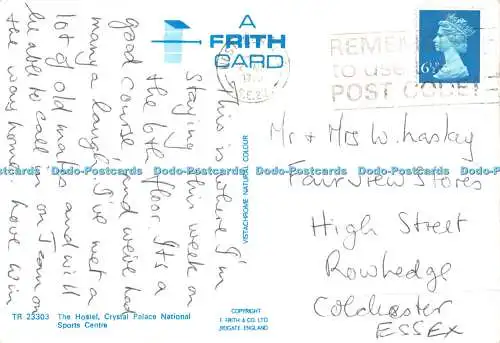 A
FRITH
CARD
REMEMBER
to use
POST CODE
6½P
This is where I'm
staying this week on
the 6th floor. It's a
good course and we've had
many a laugh. I've met a
lot of old mates and will
be able to call in on J.
the way home.
Love Win
VISTACHROME NATURAL COLOUR
Mr & Mrs W. Laskey
Fairview Stores
High Street
Rowhedge
Colchester
ESSEX
TR 23303 The Hostel, Crystal Palace National
Sports Centre
COPYRIGHT
F. FRITH & CO. LTD
REIGATE, ENGLAND